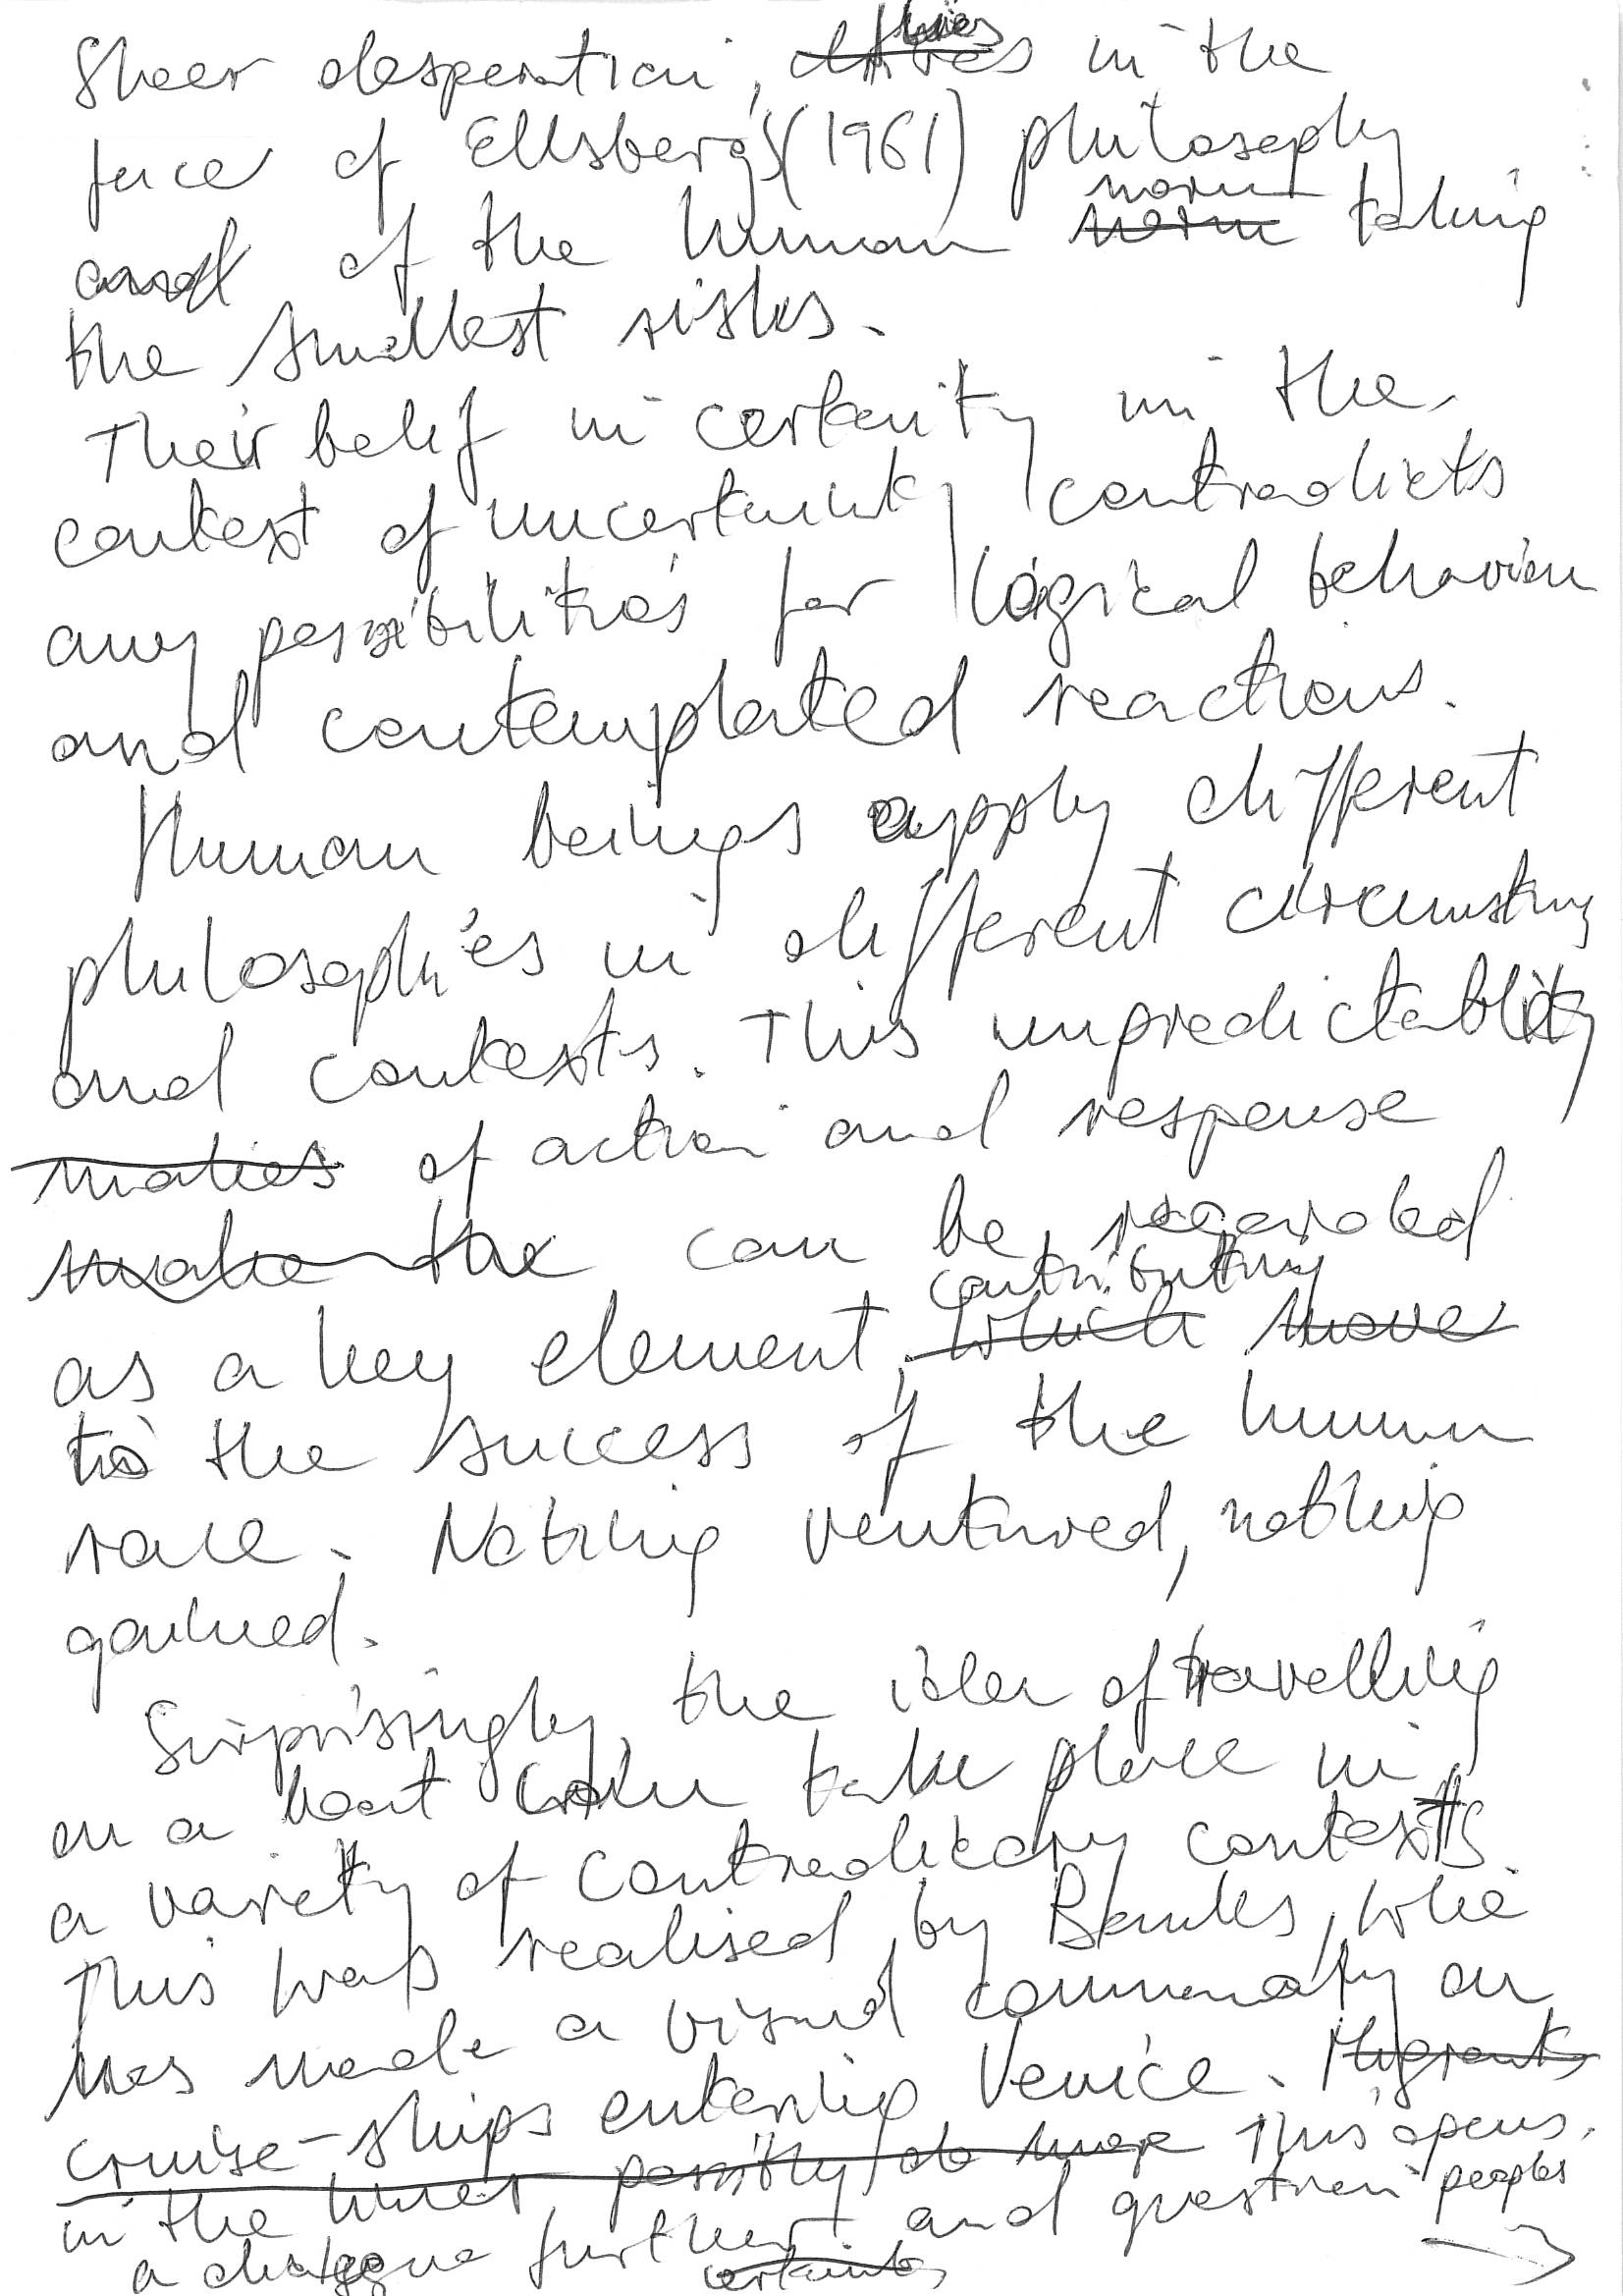 Sheer desperation, flies in the
face of Ellsberg's (1961) philosophy
and of the human norm taking
the smallest risks.
Their belief in certainty in the
context of uncertainty contradicts
any possibilities for logical behaviour
and contemplated reactions.
Human beings apply different
philosophies in different circumstances
and contexts. This unpredictability
makes of action and response
make the can be regarded
contributing
as a key element, which move
to the success of the human
race. Nothing ventured, nothing
gained.
Surprisingly, the idea of travelling
on a boat can take place in
a variety of contradictory contexts.
This was realised by Banksy, who
has made a visual commentary on
cruise-ships entering Venice. Migrants
in the possibly do hope This opens
a dialogue further and question peoples
certainty